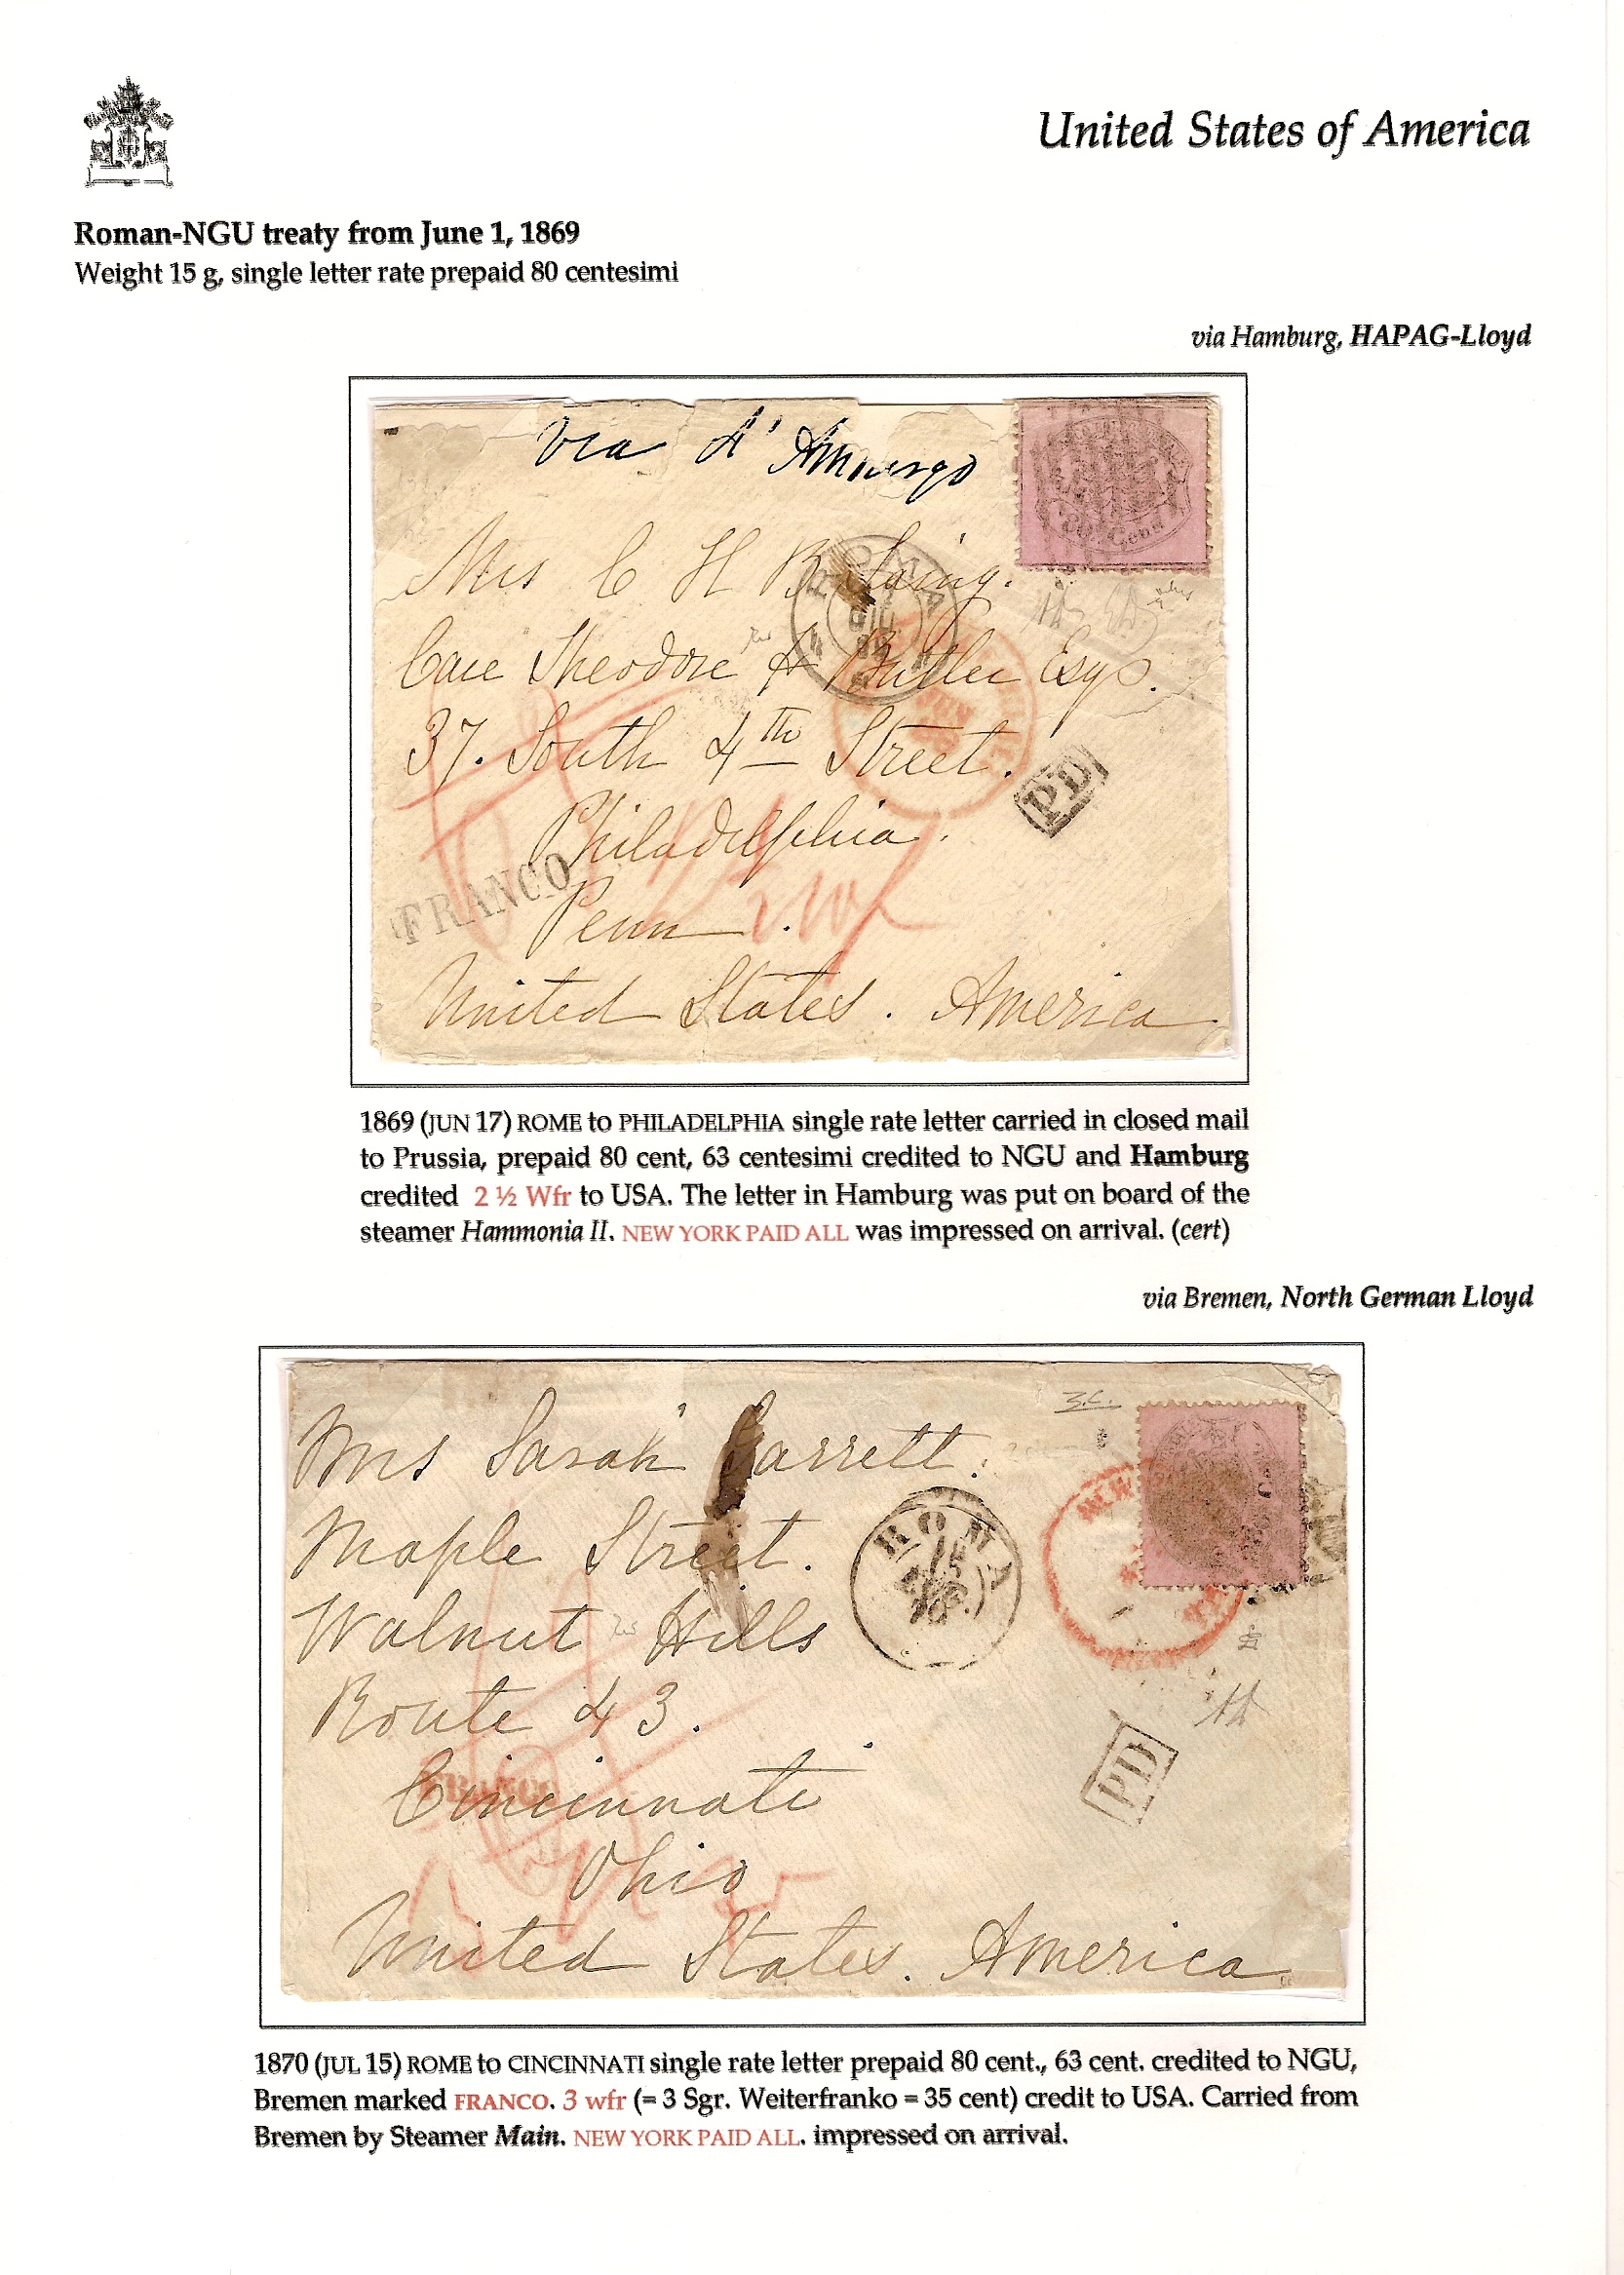 United States of America
Roman-NGU treaty from June 1, 1869
Weight 15 g, single letter rate prepaid 80 centesimi
via Hamburg, HAPAG-Lloyd
Via d'Amburgo
ROMA
Mrs C H
Care Theodore H Butler Esqr.
37. South 4th Street.
PD
Philadelphia.
FRANCO
Penn.
United States. America
1869 (JUN 17) ROME to PHILADELPHIA single rate letter carried in closed mail
to Prussia, prepaid 80 cent, 63 centesimi credited to NGU and Hamburg
credited 2 ½ Wfr to USA. The letter in Hamburg was put on board of the
steamer Hammonia II. NEW YORK PAID ALL was impressed on arrival. (cert)
via Bremen, North German Lloyd
Mrs Sarah Garrett.
Maple Street.
ROMA
NEW
Walnut Hills
Route 43.
PD
FRANCO
Cincinnati
Ohio
United States. America
1870 (JUL 15) ROME to CINCINNATI single rate letter prepaid 80 cent., 63 cent. credited to NGU,
Bremen marked FRANCO. 3 wfr (= 3 Sgr. Weiterfranko = 35 cent) credit to USA. Carried from
Bremen by Steamer Main. NEW YORK PAID ALL. impressed on arrival.